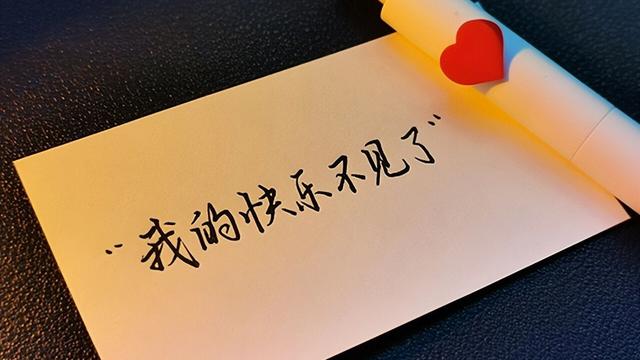 “我的快乐不见了”